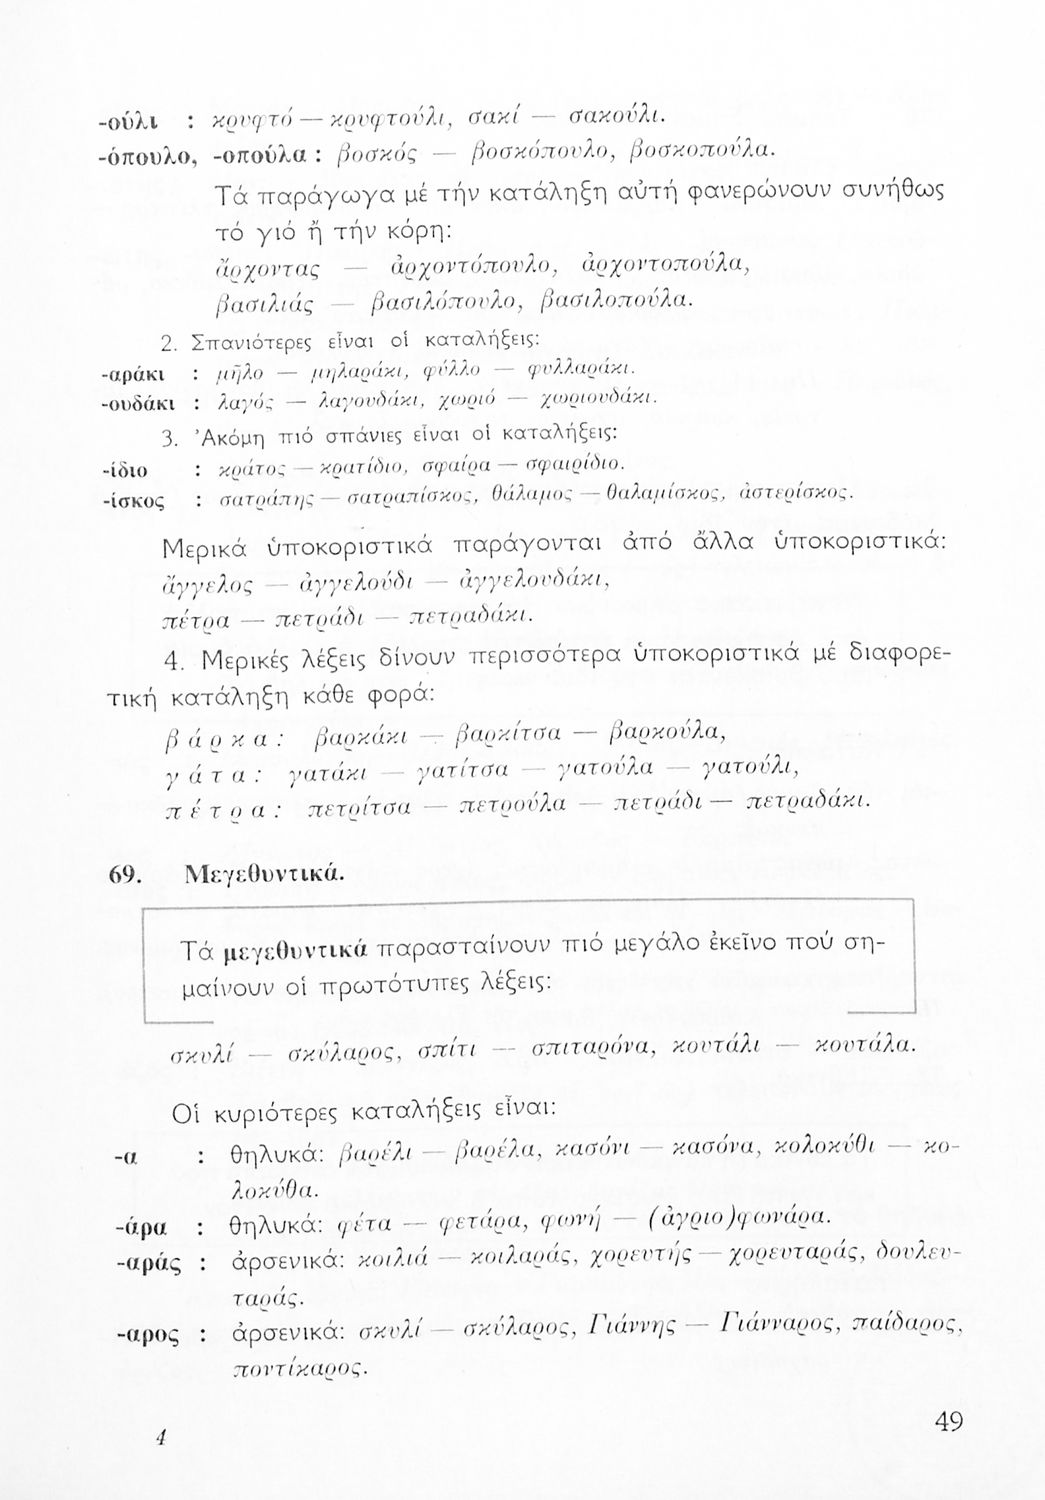 -ούλι : κρυφτό — κρυφτούλι, σακί — σακούλι.
-όπουλο, -οπούλα : βοσκός — βοσκόπουλο, βοσκοπούλα.
Τά παράγωγα μέ τήν κατάληξη αὐτή φανερώνουν συνήθως
τό γιό ἤ τήν κόρη:
ἄρχοντας — ἀρχοντόπουλο, ἀρχοντοπούλα,
βασιλιάς — βασιλόπουλο, βασιλοπούλα.
2. Σπανιότερες εἶναι οἱ καταλήξεις:
-αράκι : μῆλο — μηλαράκι, φύλλο — φυλλαράκι.
-ουδάκι : λαγός — λαγουδάκι, χωριό — χωριουδάκι.
3. Ἀκόμη πιό σπάνιες εἶναι οἱ καταλήξεις:
-ίδιο : κράτος — κρατίδιο, σφαίρα — σφαιρίδιο.
-ίσκος : σατράπης — σατραπίσκος, θάλαμος — θαλαμίσκος, ἀστερίσκος.
Μερικά ὑποκοριστικά παράγονται ἀπό ἄλλα ὑποκοριστικά:
ἄγγελος — ἀγγελούδι — ἀγγελουδάκι,
πέτρα — πετράδι — πετραδάκι.
4. Μερικές λέξεις δίνουν περισσότερα ὑποκοριστικά μέ διαφορε-
τική κατάληξη κάθε φορά:
βάρκα: βαρκάκι — βαρκίτσα — βαρκούλα,
γάτα: γατάκι — γατίτσα — γατούλα — γατούλι,
πέτρα: πετρίτσα — πετρούλα — πετράδι — πετραδάκι.
69. Μεγεθυντικά.
Τά μεγεθυντικά παρασταίνουν πιό μεγάλο ἐκεῖνο πού ση-
μαίνουν οἱ πρωτότυπες λέξεις:
σκυλί — σκύλαρος, σπίτι — σπιταρόνα, κουτάλι — κουτάλα.
Οἱ κυριότερες καταλήξεις εἶναι:
-α : θηλυκά: βαρέλι — βαρέλα, κασόνι — κασόνα, κολοκύθι — κο-
λοκύθα.
-άρα : θηλυκά: φέτα — φετάρα, φωνή — (ἀγριο)φωνάρα.
-αράς : ἀρσενικά: κοιλιά — κοιλαράς, χορευτής — χορευταράς, δουλευ-
ταράς.
-αρος : ἀρσενικά: σκυλί — σκύλαρος, Γιάννης — Γιάνναρος, παίδαρος,
ποντίκαρος.
4
49